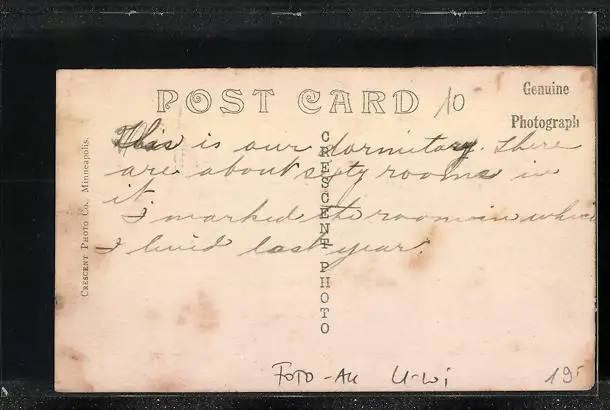 POST CARD
10
Genuine
Photograph
This is our dormitory. There
are about sixty rooms in
it.
I marked the room in which
I lived last year.
CRESCENT PHOTO
CRESCENT PHOTO CO., Minneapolis.
FOTO-AK U-Wi